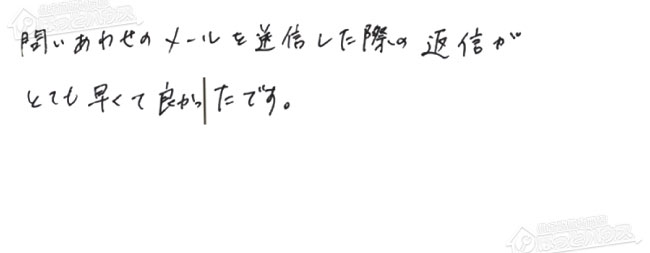 問いあわせのメールを送信した際の返信が
とても早くて良かったです。